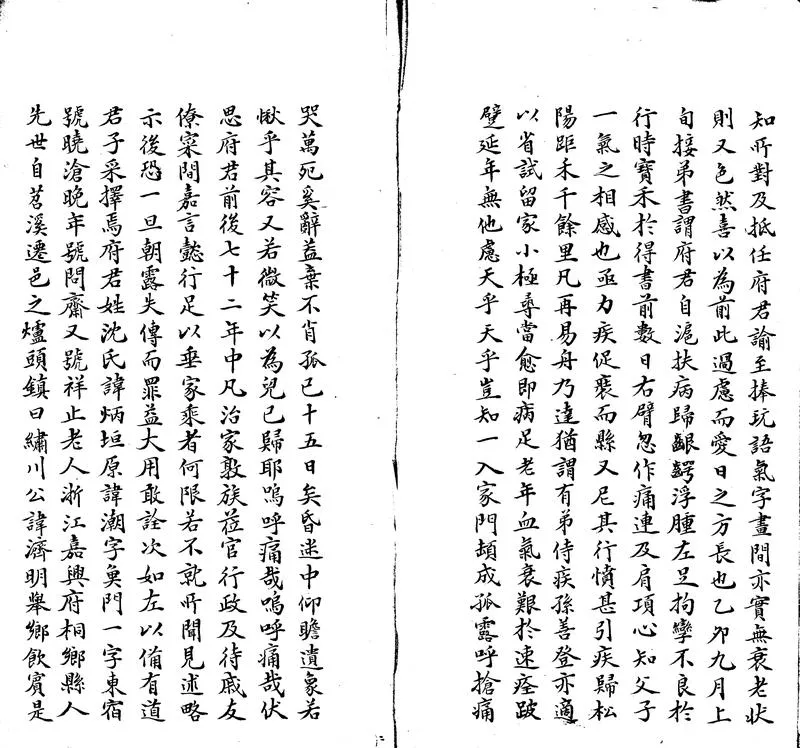 知所對及抵任府君諭至捧玩語氣字畫間亦實無衰老狀
則又色然喜以為前此過慮而愛日之方長也乙卯九月上
旬接弟書謂府君自滬扶病歸齦齶浮腫左足拘攣不良於
行時寶禾於得書前數日右臂忽作痛連及肩項心知父子
一氣之相感也亟力疾促裝而縣又尼其行憤甚引疾歸松
陽距禾千餘里凡再易舟乃達猶謂有弟侍疾孫善登亦適
以省試留家小極尋當愈即病足老年血氣衰艱於速痊跛
躄延年無他慮天乎天乎豈知一入家門頓成孤露呼搶痛
哭萬死奚辭益棄不肖孤已十五日矣昏迷中仰瞻遺象若
愀乎其容又若微笑以為兒已歸耶嗚呼痛哉嗚呼痛哉伏
思府君前後七十二年中凡治家敦族莅官行政及待戚友
僚寀間嘉言懿行足以垂家乘者何限若不就所聞見述略
示後恐一旦朝露失傳而罪益大用敢詮次如左以備有道
君子采擇焉府君姓沈氏諱炳垣原諱潮字魚門一字東宿
號曉滄晚年號問齋又號祥止老人浙江嘉興府桐鄉縣人
先世自苕溪遷邑之爐頭鎮曰繡川公諱濟明舉鄉飲賓是